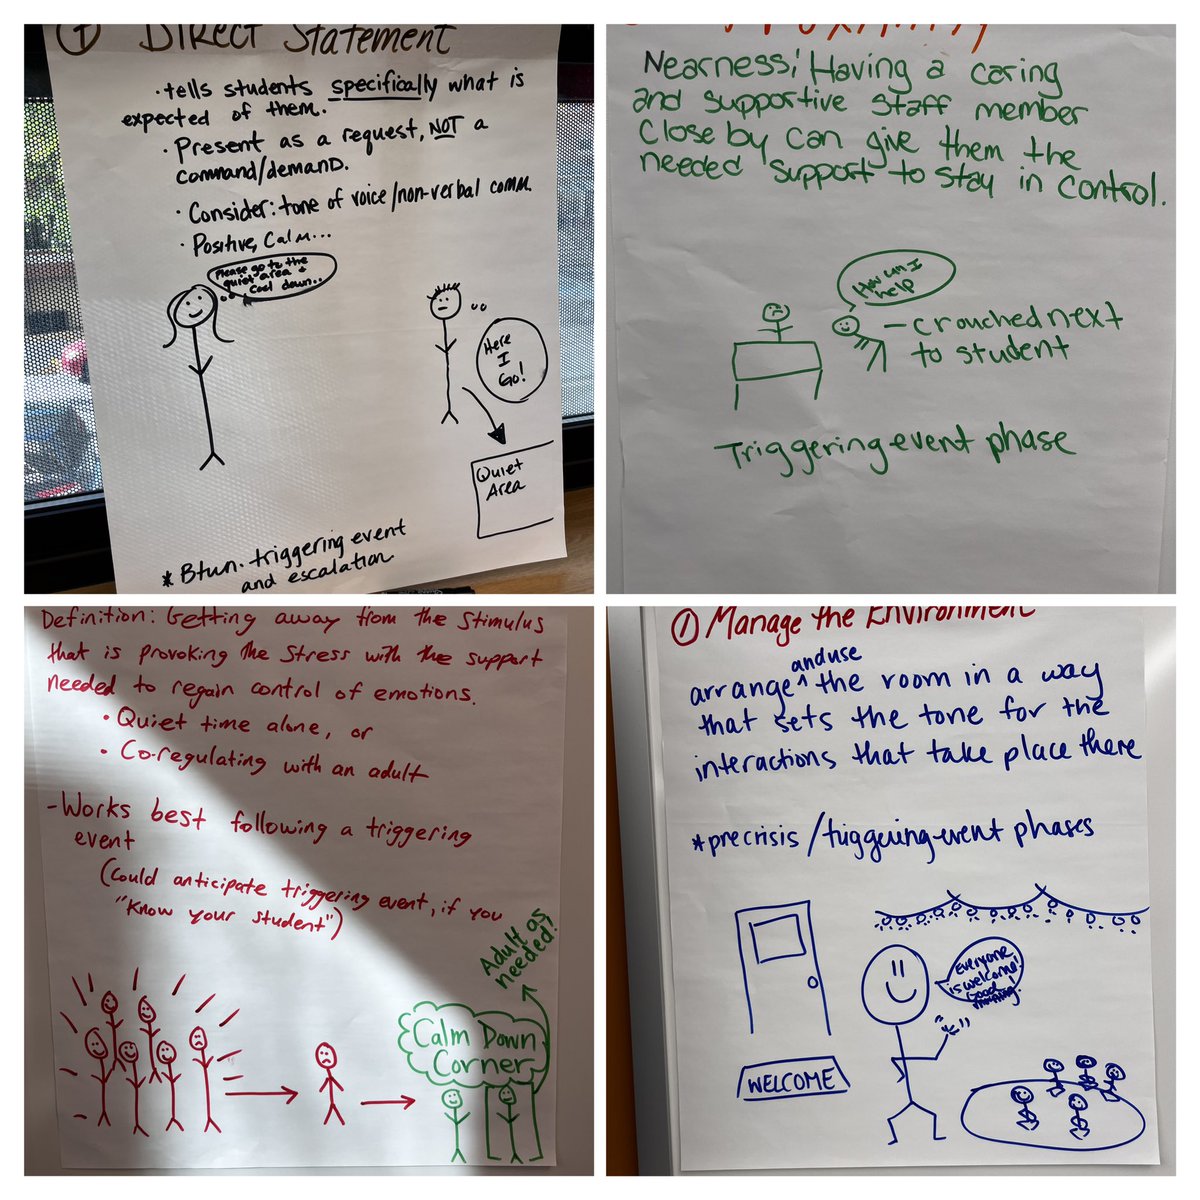 ① DIRECT Statement
• tells students specifically what is
expected of them.
• Present as a request, NOT a
command/demand.
• Consider: tone of voice/non-verbal comm.
• Positive, Calm...
Please go to the
quiet area +
cool down..
Here
I
Go!
Quiet
Area
* Btwn. triggering event
and escalation
Nearness: Having a caring
and supportive staff member
close by can give them the
needed support to stay in control.
How can I
help
- crouched next
to student
Triggering event phase
Definition: Getting away from the stimulus
that is provoking the stress with the support
needed to regain control of emotions.
• Quiet time alone, or
• Co-regulating with an adult
- Works best following a triggering
event
(Could anticipate triggering event, if you
"Know your student")
Adult as
needed!
Calm Down
Corner
① Manage the Environment
and use
arrange ^ the room in a way
that sets the tone for the
interactions that take place there
* precrisis / triggering event phases
Everyone
is welcome!
Good
morning!
WELCOME